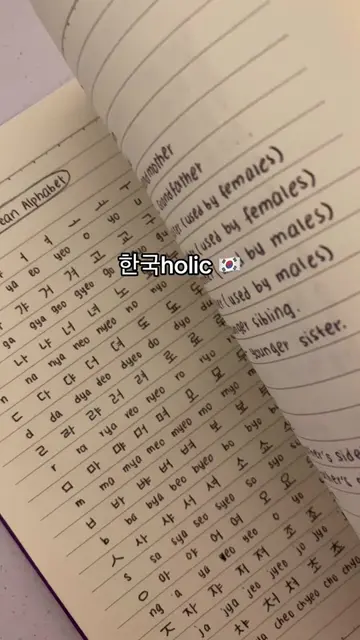 한국holic 🇰🇷
ean Alphabet
ㅕ ㅗ ㅛ ㅜ
ya eo yeo o yo u
갸 거 겨 고 교 구
ga gya geo gyeo go gyo gu
나 냐 너 녀 노
n na nya neo nyeo no nyo
ㄷ 다 댜 더 뎌 도 됴
d da dya deo dyeo do dyo du
ㄹ 라 랴 러 려 로 료
r ra rya reo ryeo ro ryo
ㅁ 마 먀 머 며 모 묘
m ma mya meo myeo mo myo
ㅂ 바 뱌 버 벼 보 뵤
b ba bya beo byeo bo byo
ㅅ 사 샤 서 셔 소 쇼
s sa sya seo syeo so syo
ㅇ 아 야 어 여 오 요
ng a ya eo yeo o yo
ㅈ 자 쟈 저 져 조 죠
ja jya jeo jyeo jo jyo
차 처 쳐 초 쵸
cheo chyeo cho chyo
mother
Grandfather
(used by females)
(used by females)
by males)
(used by males)
sibling.
younger sister.
er's side